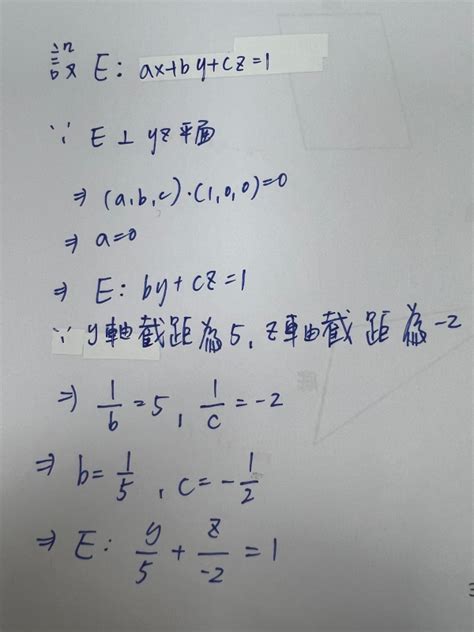 設 E: ax+by+cz=1
∵ E⊥yz平面
⇒ (a,b,c)·(1,0,0)=0
⇒ a=0
⇒ E: by+cz=1
∵ y軸截距為5, z軸截距為-2
⇒ 1/b=5, 1/c=-2
⇒ b=1/5, c=-1/2
⇒ E: y/5+z/-2=1